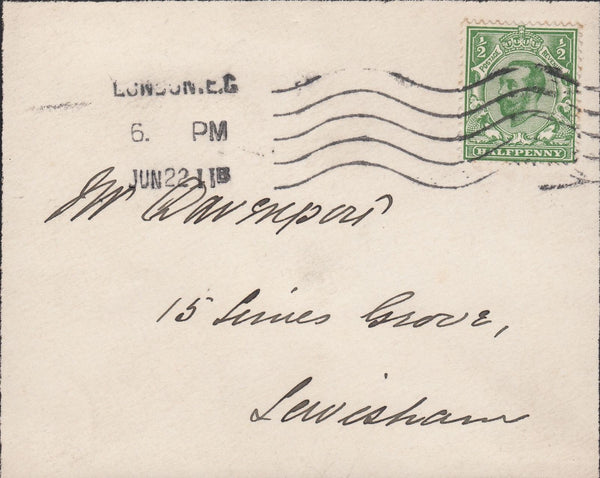 LONDON.E.C
6. PM
JUN 22 11B
½ ½
POSTAGE REVENUE
HALFPENNY
Mr Davenport
15 Limes Grove,
Lewisham